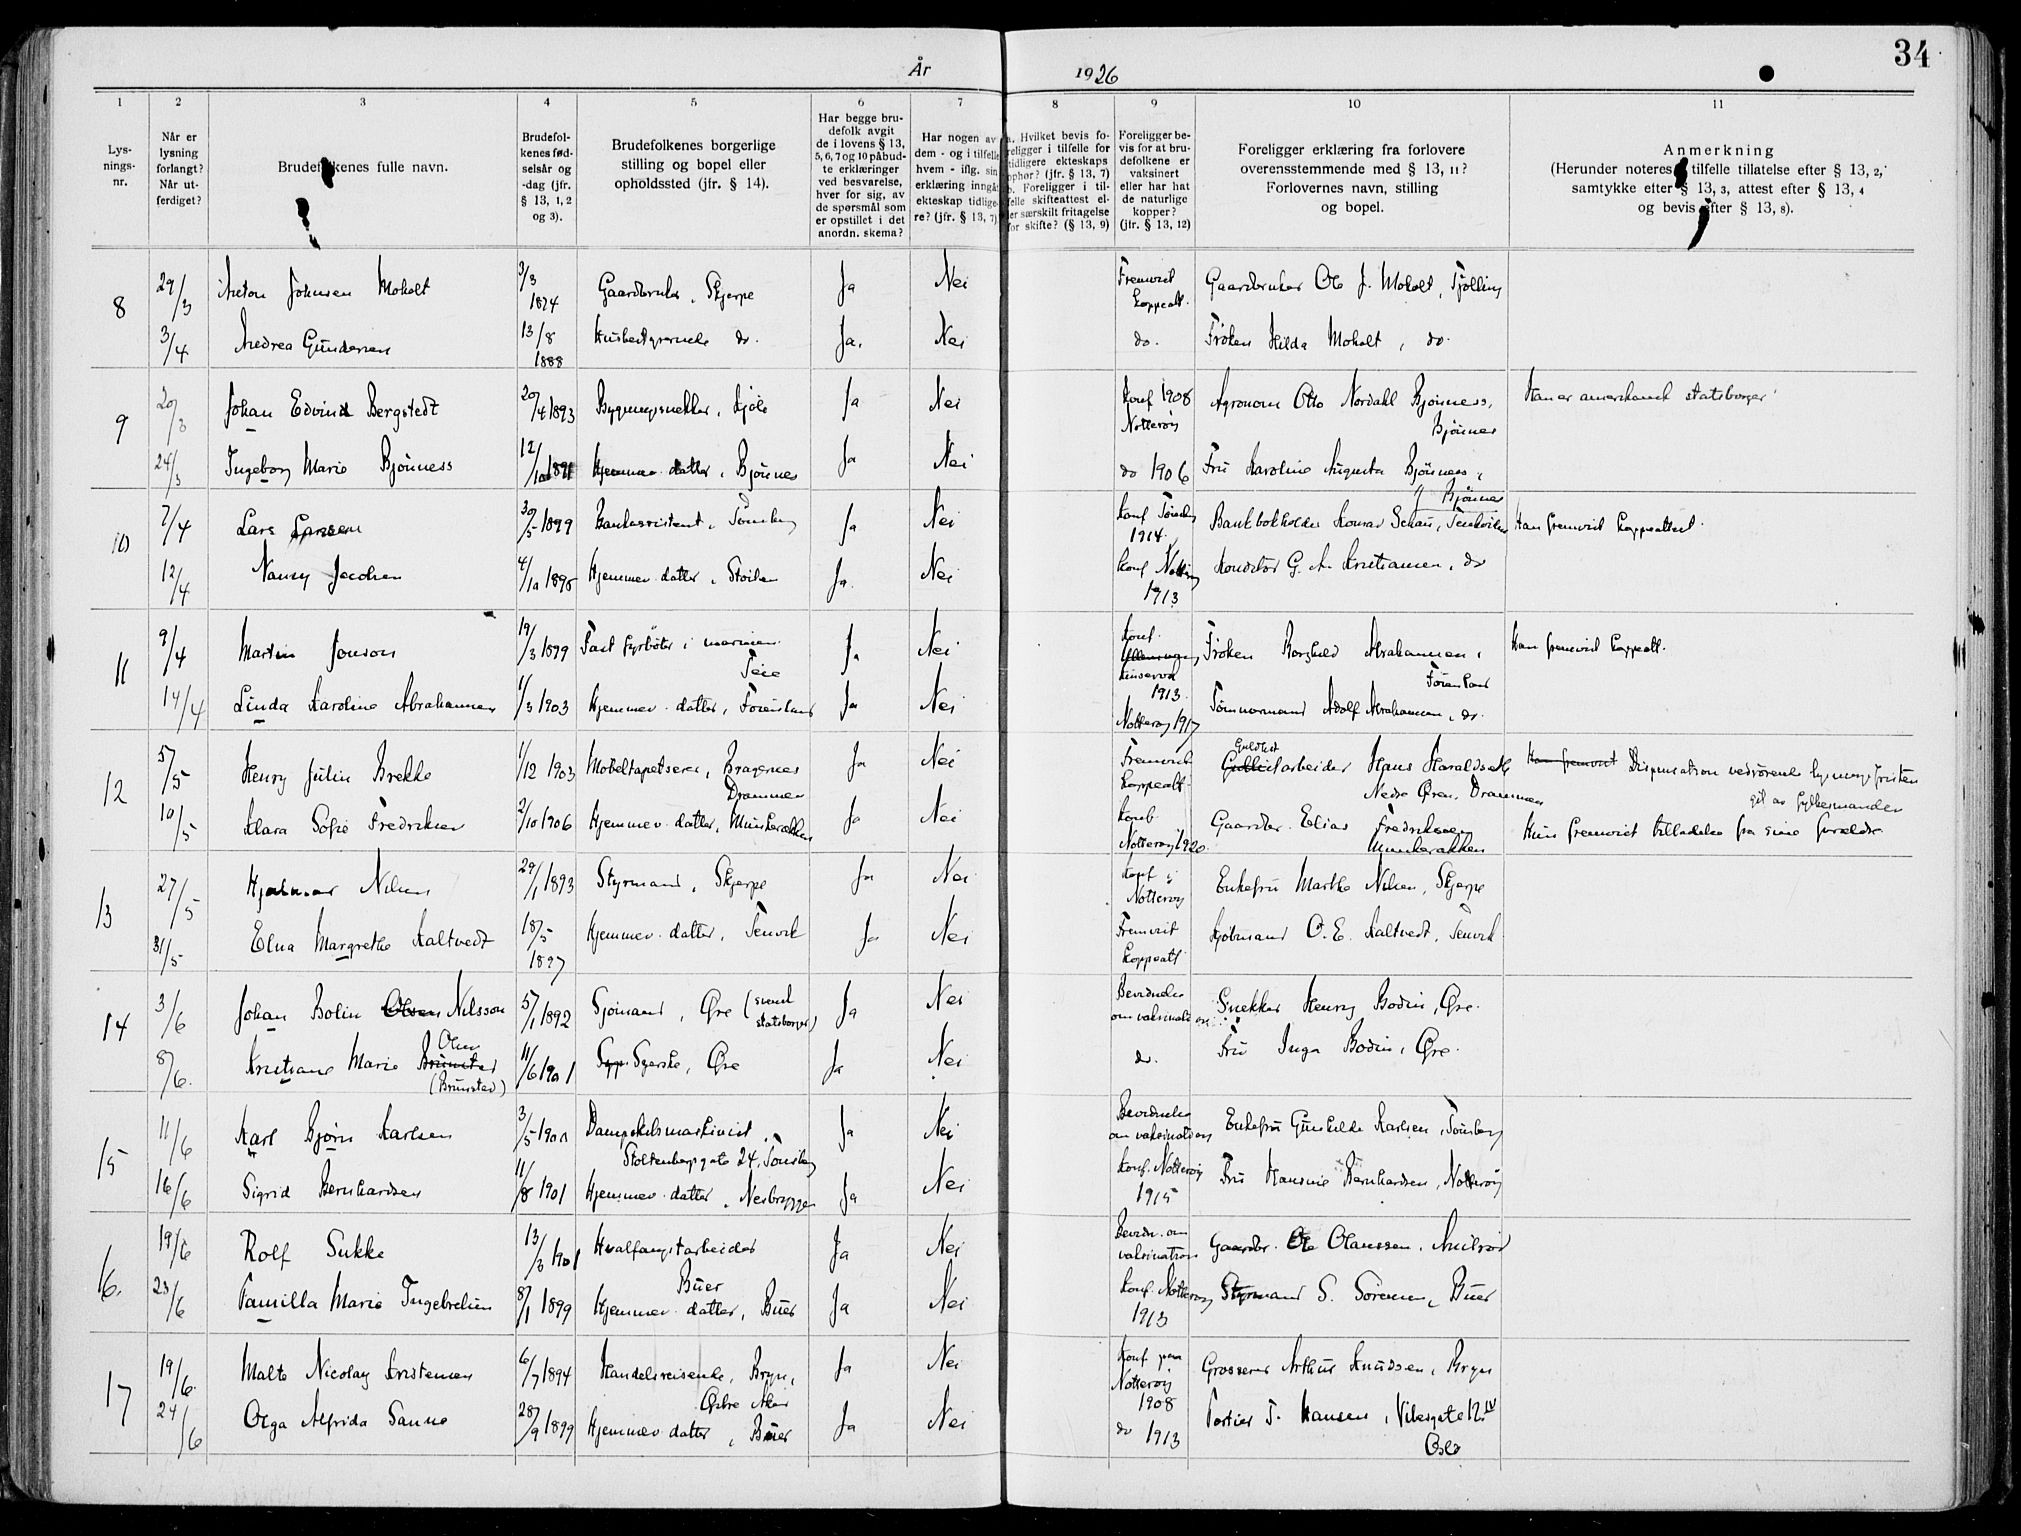 34
År 1926
1 2 3 4 5 6 7 8 9 10 11
Lys-
nings-
nr.
Når er
lysning
forlangt?
Når ut-
ferdiget?
Brudefolkenes fulle navn.
Brudefol-
kenes fød-
selsår og
-dag (jfr.
§ 13, 1, 2
og 3).
Brudefolkenes borgerlige
stilling og bopel eller
opholdssted (jfr. § 14).
Har begge bru-
defolk avgit
de i lovens § 13,
5, 6, 7 og 10 påbud-
te erklæringer
ved besvarelse,
hver for sig, av
de spørsmål som
er opstillet i det
anordn. skema?
Har nogen av
dem - og i tilfelle
hvem - iflg. sin
erklæring inngåt
ekteskap tidlige-
re? (jfr. § 13, 7)
a. Hvilket bevis fo-
religger i tilfelle for
tidligere ekteskaps
ophør? (jfr. § 13, 7)
b. Foreligger i til-
felle skifteattest el-
ler særskilt fritagelse
for skifte? (§ 13, 9)
Foreligger be-
vis for at bru-
defolkene er
vaksinert
eller har hat
de naturlige
kopper?
(jfr. § 13, 12)
Foreligger erklæring fra forlovere
overensstemmende med § 13, 11?
Forlovernes navn, stilling
og bopel.
Anmerkning
(Herunder noteres i tilfelle tillatelse efter § 13, 2,
samtykke efter § 13, 3, attest efter § 13, 4
og bevis efter § 13, 8).
8 29/3 Anton Johnsen Moholt 3/3 1874 Gaardbruker, Skjerpe Ja Nei Fremvist koppeatt. Gaardbruker Ole J. Moholt, Tjølling
3/4 Andrea Gundersen 13/8 1888 Husbestyrerinde do. Ja. Nei do. Frøken Hilda Moholt, do.
9 20/3 Johan Edvind Bergstedt 20/4 1893 Bygningssnekker, Kjøle Ja Nei Konf 1908 Nøtterøy Agronom Otto Nordahl Bjønness, Bjønnes Han er amerikansk statsborger
24/3 Ingeborg Marie Bjønness 12/10 1891 Hjemmev. datter, Bjønnes Ja Nei do 1906 Fru Karoline Augusta Bjønness, Bjønnes
10 7/4 Lars Larsen 30/5 1899 Bankassistent, Tønsberg Ja Nei Konf Tønsberg 1914. Bankbokholder Konrad Schau, Han fremvist koppeattest.
12/4 Nancy Jacobsen 4/10 1898 Hjemmev. datter, Ja. Nei Konf Nøtterøy 1913 Konditor G. A. Kristiansen, do
11 9/4 Martin Jonson 19/3 1899 Fast fyrbøter i marinen. Teie Ja Nei Konf. Kinservik 1913. Frøken Borghild Abrahamsen, Føienland Han fremvist koppeatt.
14/4 Linda Karoline Abrahamsen 1/3 1903 Hjemmev. datter, Føienland Ja Nei Nøtterøy 1917 Tømmermand Adolf Abrahamsen, do.
12 5/5 Henry Julin Brekke 1/12 1903 Møbeltapetserer, Bragernes Drammen Ja Nei Fremvist koppeatt. Guldlistarbeider Hans Haraldseth Nedre Øren, Drammen Han fremvist Dispensation vedrørende lysningsfristen git av fylkesmanden
10/5 Klara Sofie Fredriksen 2/10 1906 Hjemmev. datter, Munkerekken Ja Nei Konf. Nøtterøy 1920. Gaardbr. Elias Fredriksen Munkerekken Hun fremvist tilladelse fra sine forældre
13 27/5 Hjalmar Nilsen 29/1 1893 Styrmand, Skjerpe Ja Nei Konf i Nøtterøy Enkefru Marthe Nilsen, Skjerpe
31/5 Elna Margrethe Kaltvedt 18/5 1897 Hjemmev. datter, Tenvik Ja Nei Fremvist koppeatt Kjøbmand O. E. Kaltvedt, Tenvik
14 3/6 Johan Bolin Olsen Nilsson 5/1 1892 Sjømand, Øre (svensk statsborger) Ja Nei Bevidnelse om vaksination Snekker Henry Bodin, Øre.
8/6. Kristiane Marie Brunstad Olsen (Brunstad) 11/6 1901 Syerske, Øre Ja Nei do. Fru Inga Bodin, Øre.
15 11/6 Karl Bjørn Karlsen 3/5 1901 Dampskibsmaskinist, Stoltenbergsgate 24, Tønsberg Ja Nei Bevidnelse om vaksination Enkefru Gunhilde Karlsen, Tønsberg
16/6 Sigrid Bernhardsen 11/8 1901 Hjemmev. datter, Nesbryggen Ja Nei Konf. Nøtterøy 1915 Fru Hansine Bernhardsen, Nøtterøy
16. 19/6 Rolf Sukke 13/3 1901 Hvalfangstarbeider Buer Ja Nei Bevidn. om vaksination Gaardbr. Ole Olaussen,
23/6 Pamilla Marie Ingebretsen 8/1 1899 Hjemmev. datter, Buer Ja Nei Konf. Nøtterøy 1913 Styrmand S. Sørensen, Buer
17 19/6. Malte Nicolay Kristensen 6/7 1894 Handelsreisende, Bryn, Østre Aker Ja Nei Konf paa Nøtterøy 1908 Grosserer Arthur Knudsen, Bryn
24/6 Olga Alfrida Sanne 28/9 1899 Hjemmev. datter, Buer Ja Nei do 1913 Portier T. Hansen, Vibesgate 12 IV Oslo